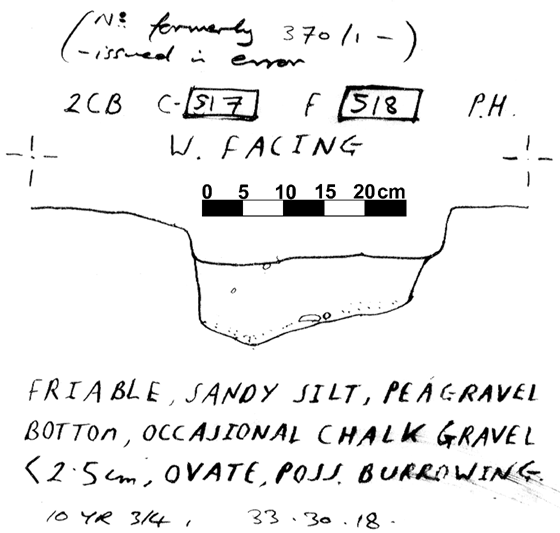 (No formerly 370/1 -)
(-issued in error
2CB C-517 F 518 P.H.
W. FACING
0 5 10 15 20cm
FRIABLE, SANDY SILT, PEAGRAVEL
BOTTOM, OCCASIONAL CHALK GRAVEL
<2.5cm, OVATE, POSS. BURROWING.
10 YR 3/4, 33.30.18.